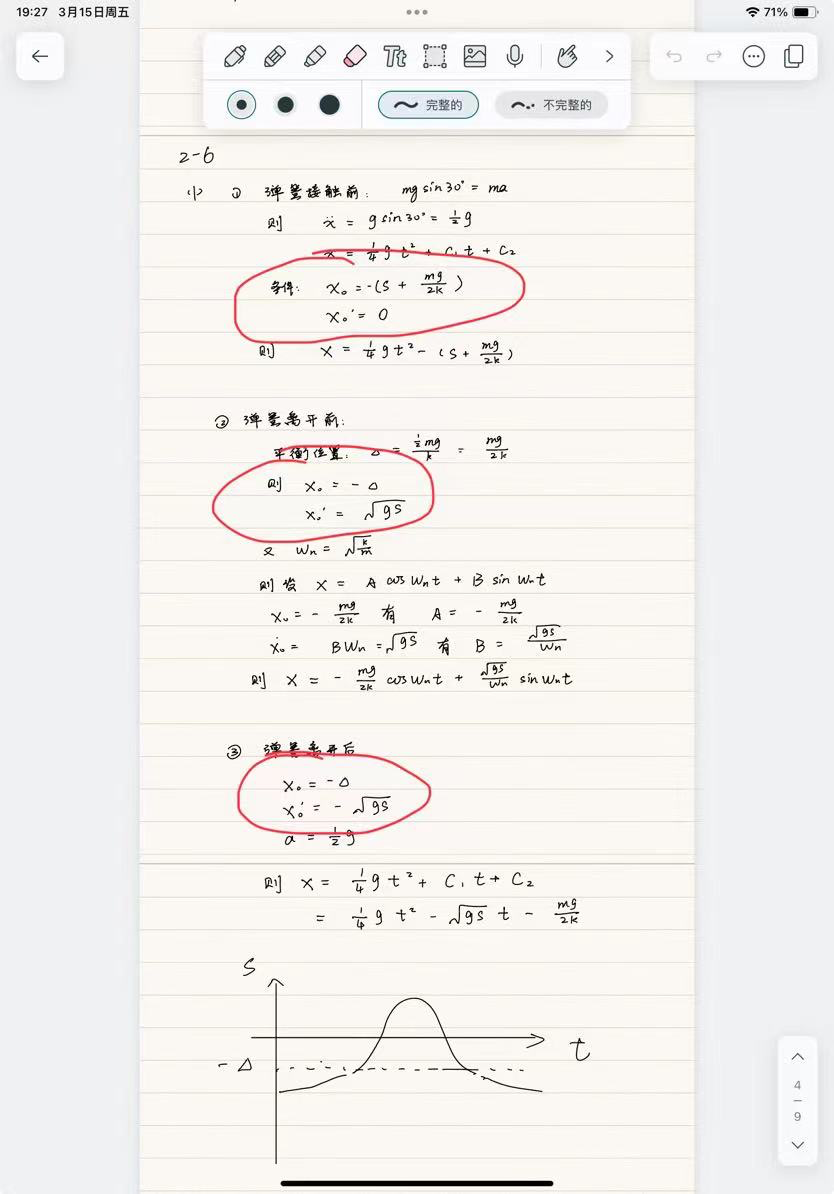 19:27 3月15日周五
71%
Tt
完整的
不完整的
2-6
(1) ① 弹簧接触前: mg sin30° = ma
则 ẍ = g sin30° = ½g
x = ¼ g t² + C₁ t + C₂
条件: x₀ = -(S + mg/2k)
x₀' = 0
则 x = ¼ g t² - (S + mg/2k)
② 弹簧离开前:
平衡位置: Δ = ½mg/k = mg/2k
则 x₀ = - Δ
x₀' = √gS
又 Wn = √k/m
则设 x = A cos Wnt + B sin Wnt
x₀ = - mg/2k 有 A = - mg/2k
ẋ₀ = BWn = √gS 有 B = √gS/Wn
则 x = - mg/2k cos Wnt + √gS/Wn sin Wnt
③ 弹簧离开后
x₀ = - Δ
x₀' = - √gS
a = ½g
则 x = ¼ g t² + C₁ t + C₂
= ¼ g t² - √gS t - mg/2k
S
t
- Δ
4
9